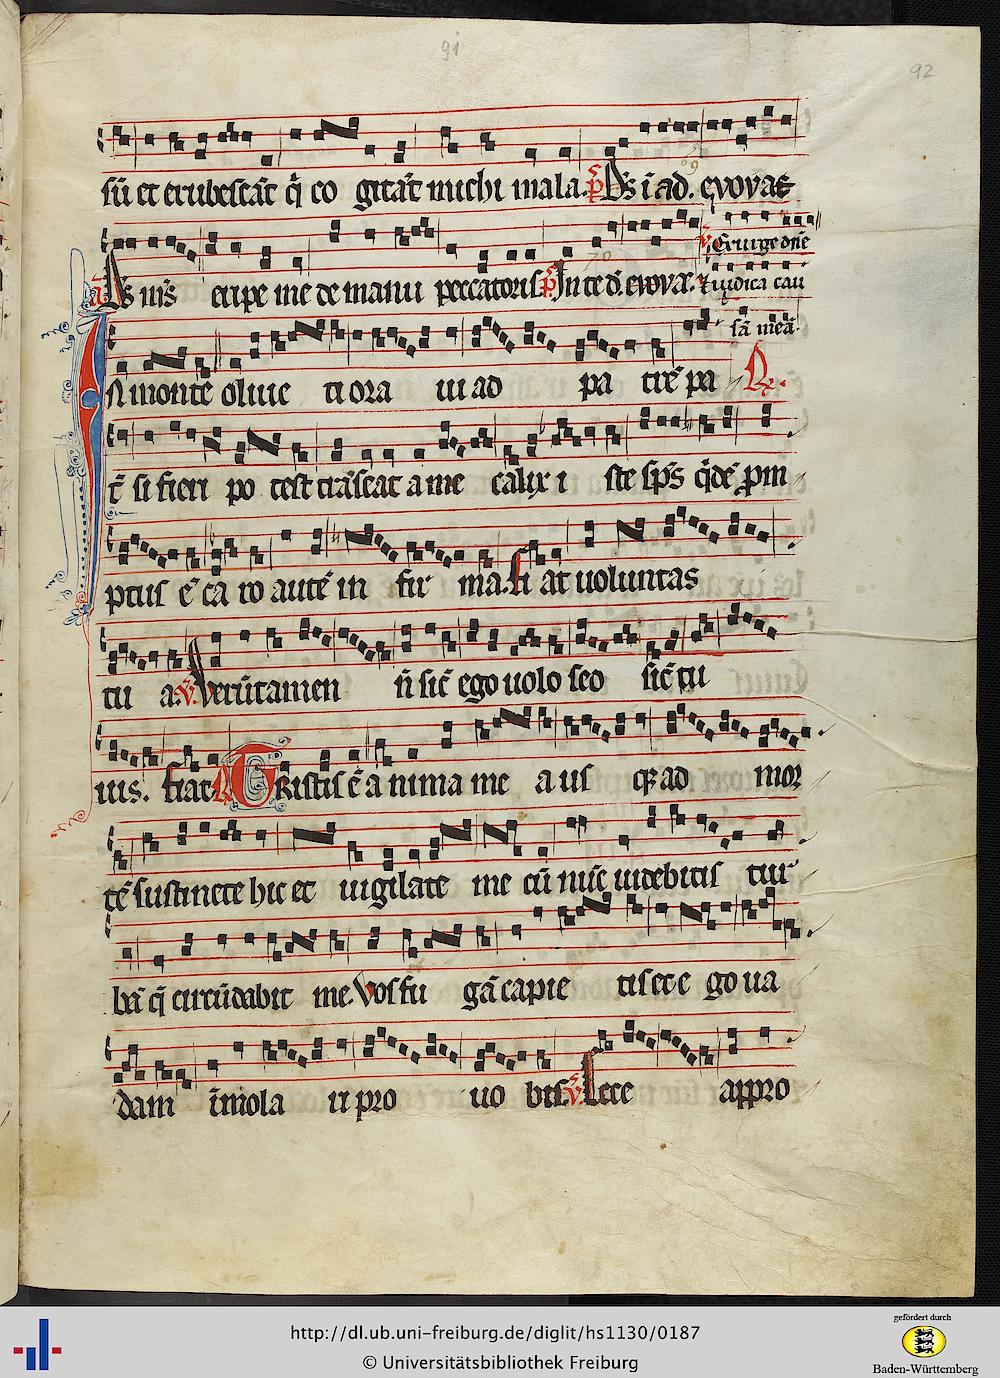 91
92
sũ et erubescãt q̃ co gitãt michi mala. p̃s Ds ĩ ad. evovae
V̾ Exurge dñe
a Ds ms̃ eripe me de manu peccatoris p̃s In te d̃. evova.
70
⁊ iudica cau
sã meã.
In monte oliue ti ora ui ad pa trẽ pa R̷.
t̃ si fieri po test trãseat a me calix i ste sp̃s q̃dẽ prom
ptus ẽ ca ro autẽ in fir ma. fi at uoluntas
tu a. V̾ Verũtamen ñ sic̃ ego uolo seo sic̃ tu
uis. fiat R̷ Tristis ẽ a nima me a us q̨ ad mor
tẽ sustinete hic et uigilate me cũ nũc uidebitis tur
bã q̃ circũdabit me. Vos fu gã capie tis et e go ua
dam ĩmola ri pro uo bis. V̾ Ecce appro
http://dl.ub.uni-freiburg.de/diglit/hs1130/0187
© Universitätsbibliothek Freiburg
gefördert durch
Baden-Württemberg